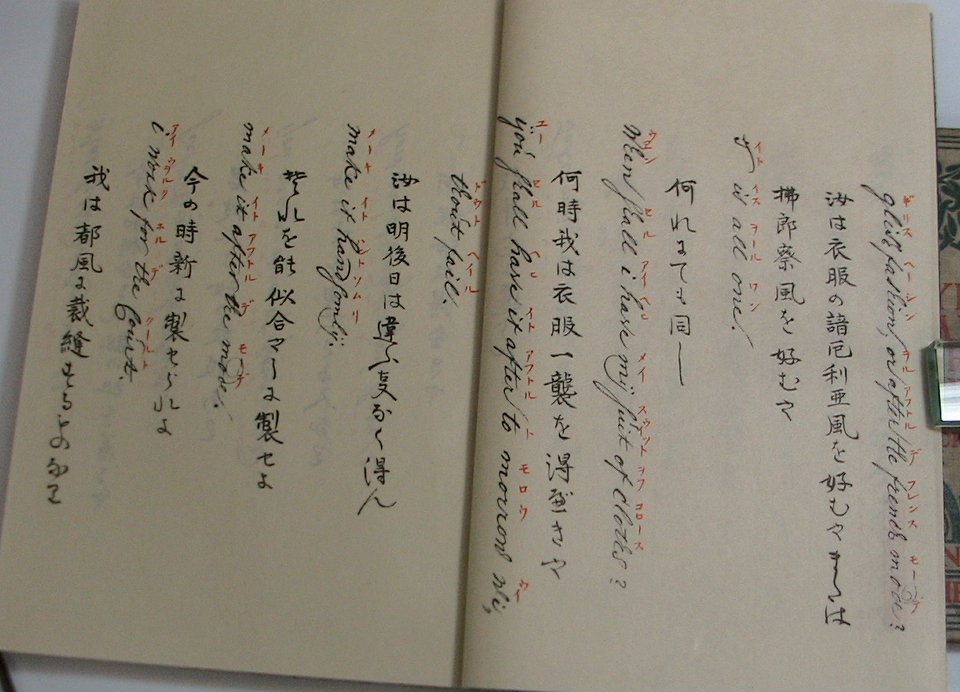 ギリス ヘーシン ヲル アフトル デ フレンス モーデ
gliſfaſhion, or after the french mode?
汝は衣服の諳厄利亜風を好むやまたは
拂郎察風を好むや
イト イス ヲール ワン
it is all one.
何れにても同し
ウエン セル アイ メイ スウツト ヲフ コロース
When ſhall i have mij ſuit of cloths?
何時我は衣服一襲を得べきや
ユー セル イト アフトル ト モロウ ウイ
you ſhall have it after to morrow wi,
ドウト ヘイル
thout fail.
汝は明後日は違なく得ん
メーキ イト ントソムリ
make it handſomlij.
れを能似合に製せよ
メーキ イト アフトル デ モーデ
make it after the mode.
今の時新に製せられよ
アイ ウヲルク ホル デ クールト
i work for the court.
我は都風に裁縫するものなり